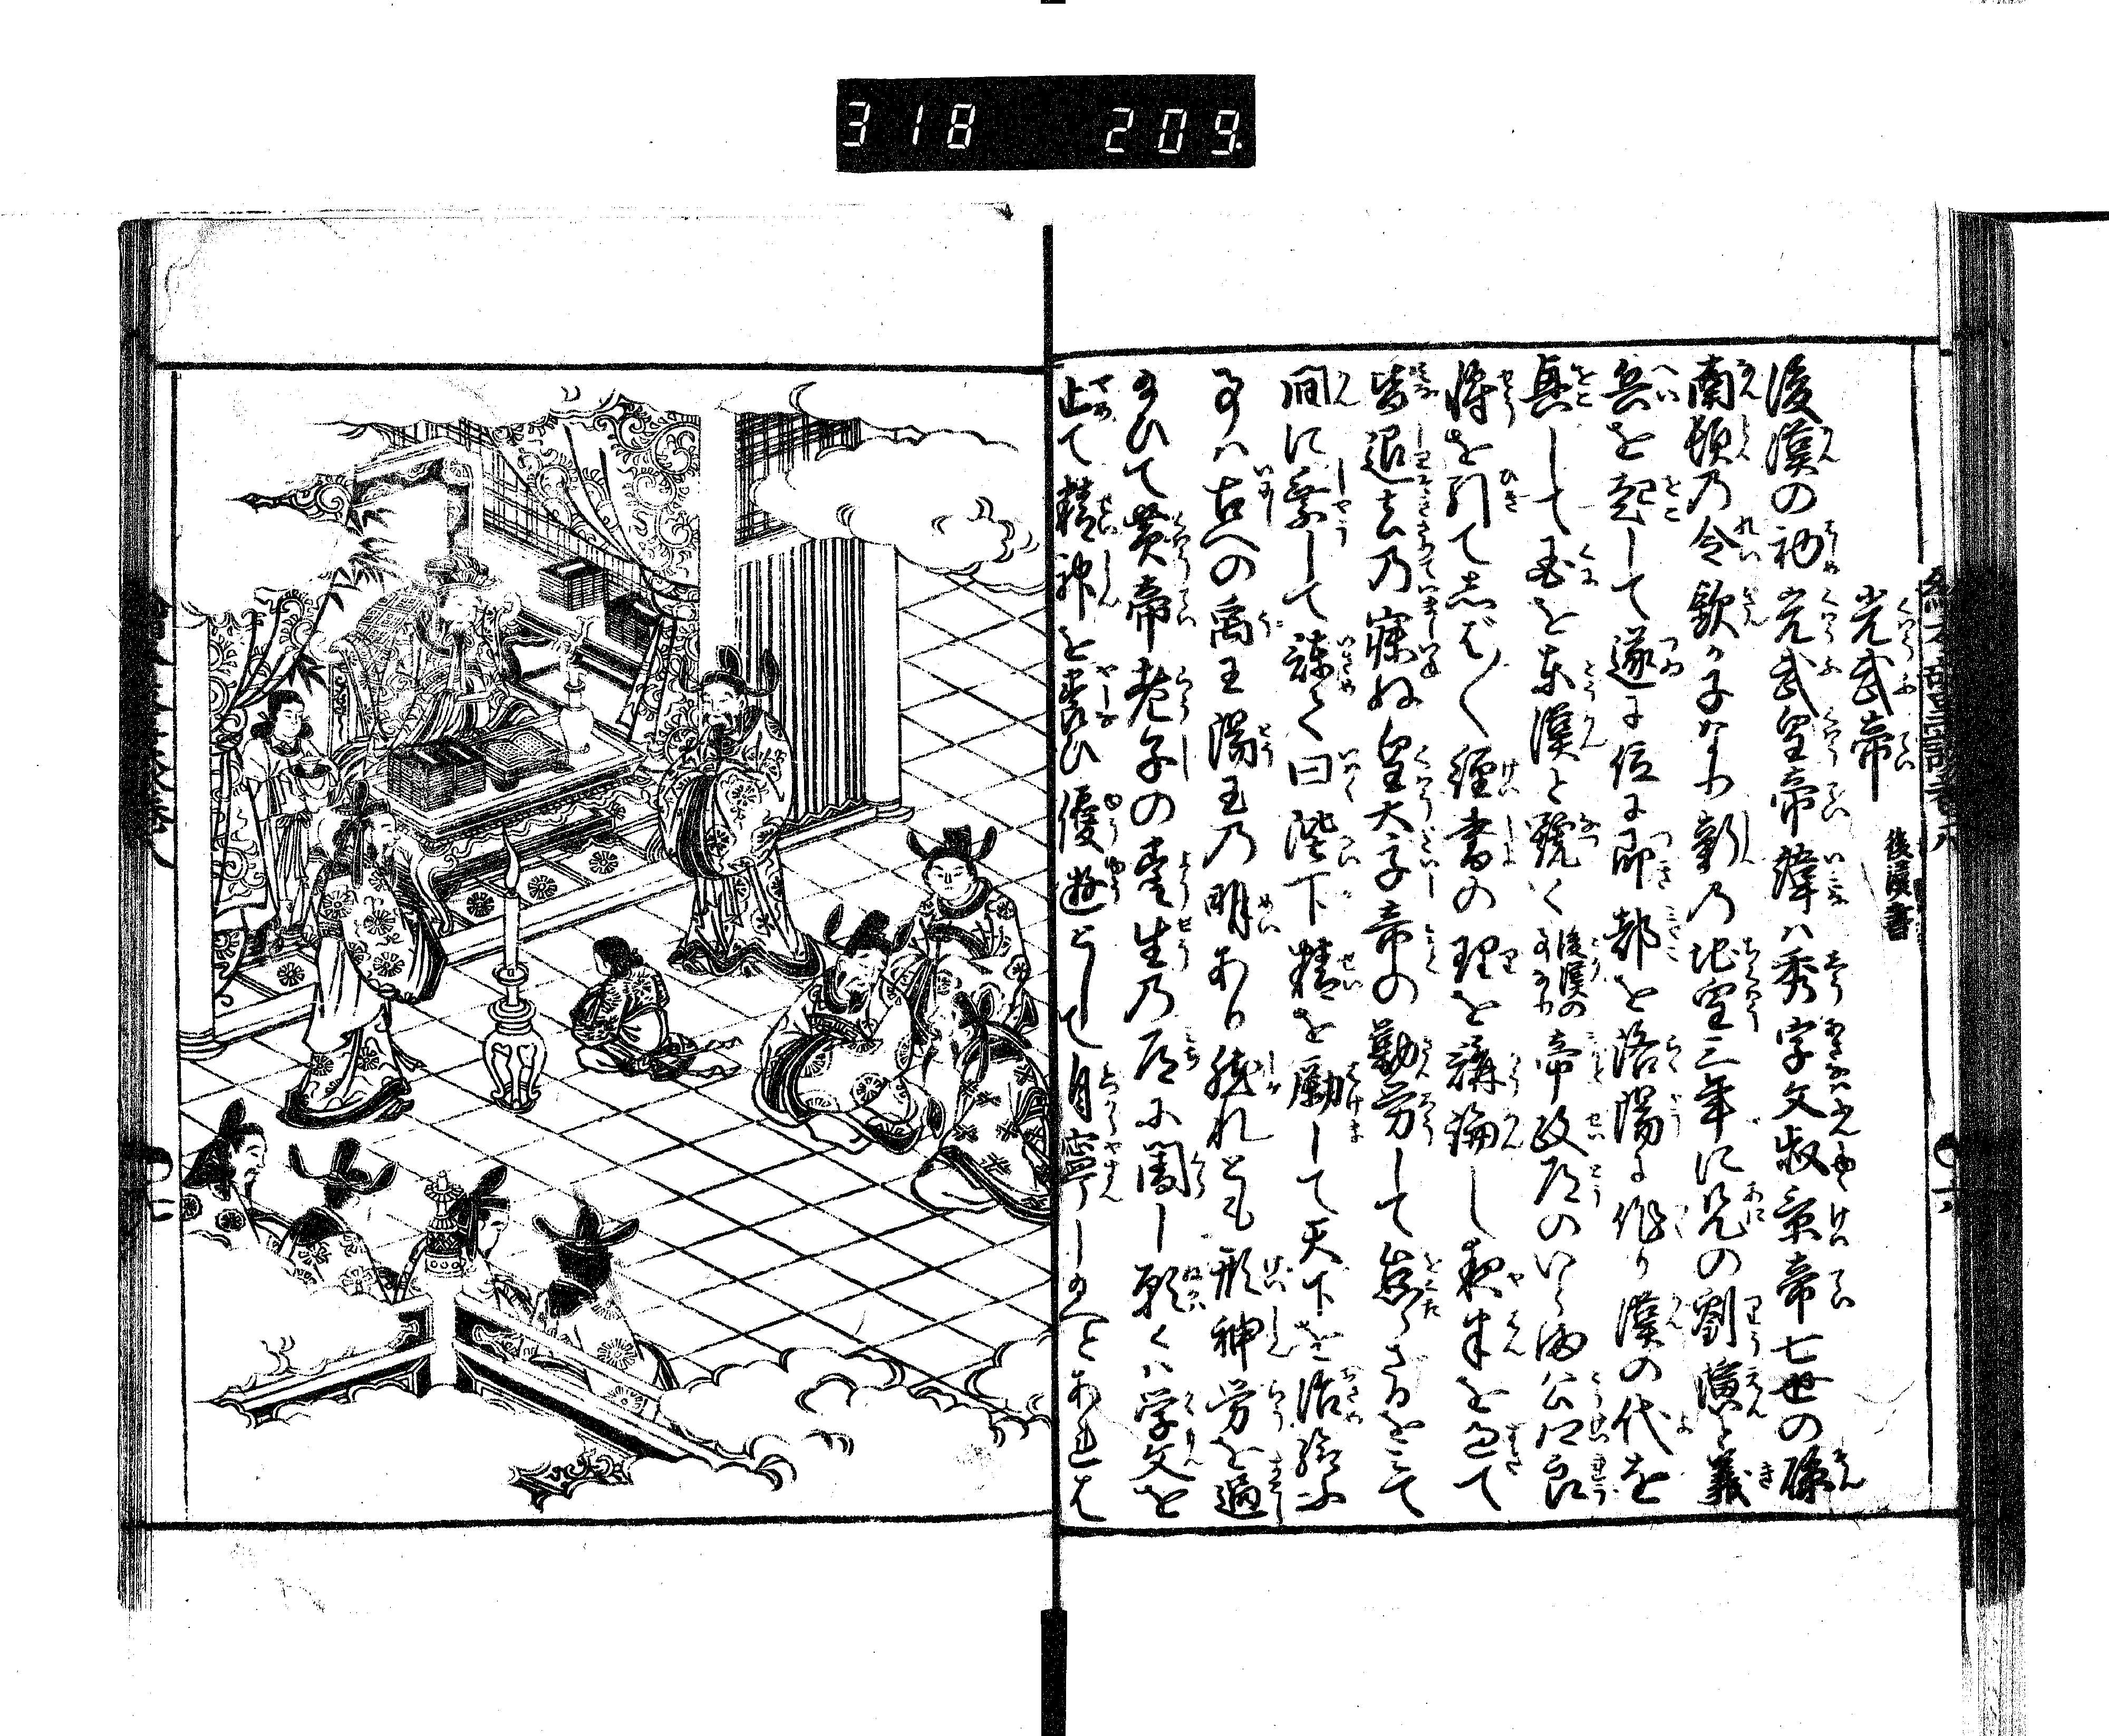 318 209
光武帝 後漢書
後漢の初光武皇帝諱ハ秀字文叔景帝七世の孫
南頓乃令欽が子なり新乃地皇三年に兄の劉演と義
兵を起して遂に位に即都を洛陽に作り漢の代を
興して国を東漢と號く後漢の事なり帝政道のいとま公卿良
将を引て志ば〱經書の理を講論し夜半を過て
皆退去乃寐ぬ皇太子帝の勤労して怠らざるをみて
間に乗して諫て曰陛下精を励して天下を治給ふ
事ハ古への禹王湯王乃明あり然れども形神労を過
給ひて黄帝老子の養生乃道に闇し願くハ学文を
止て精神を養ひ優遊として自寧し給へとあれば